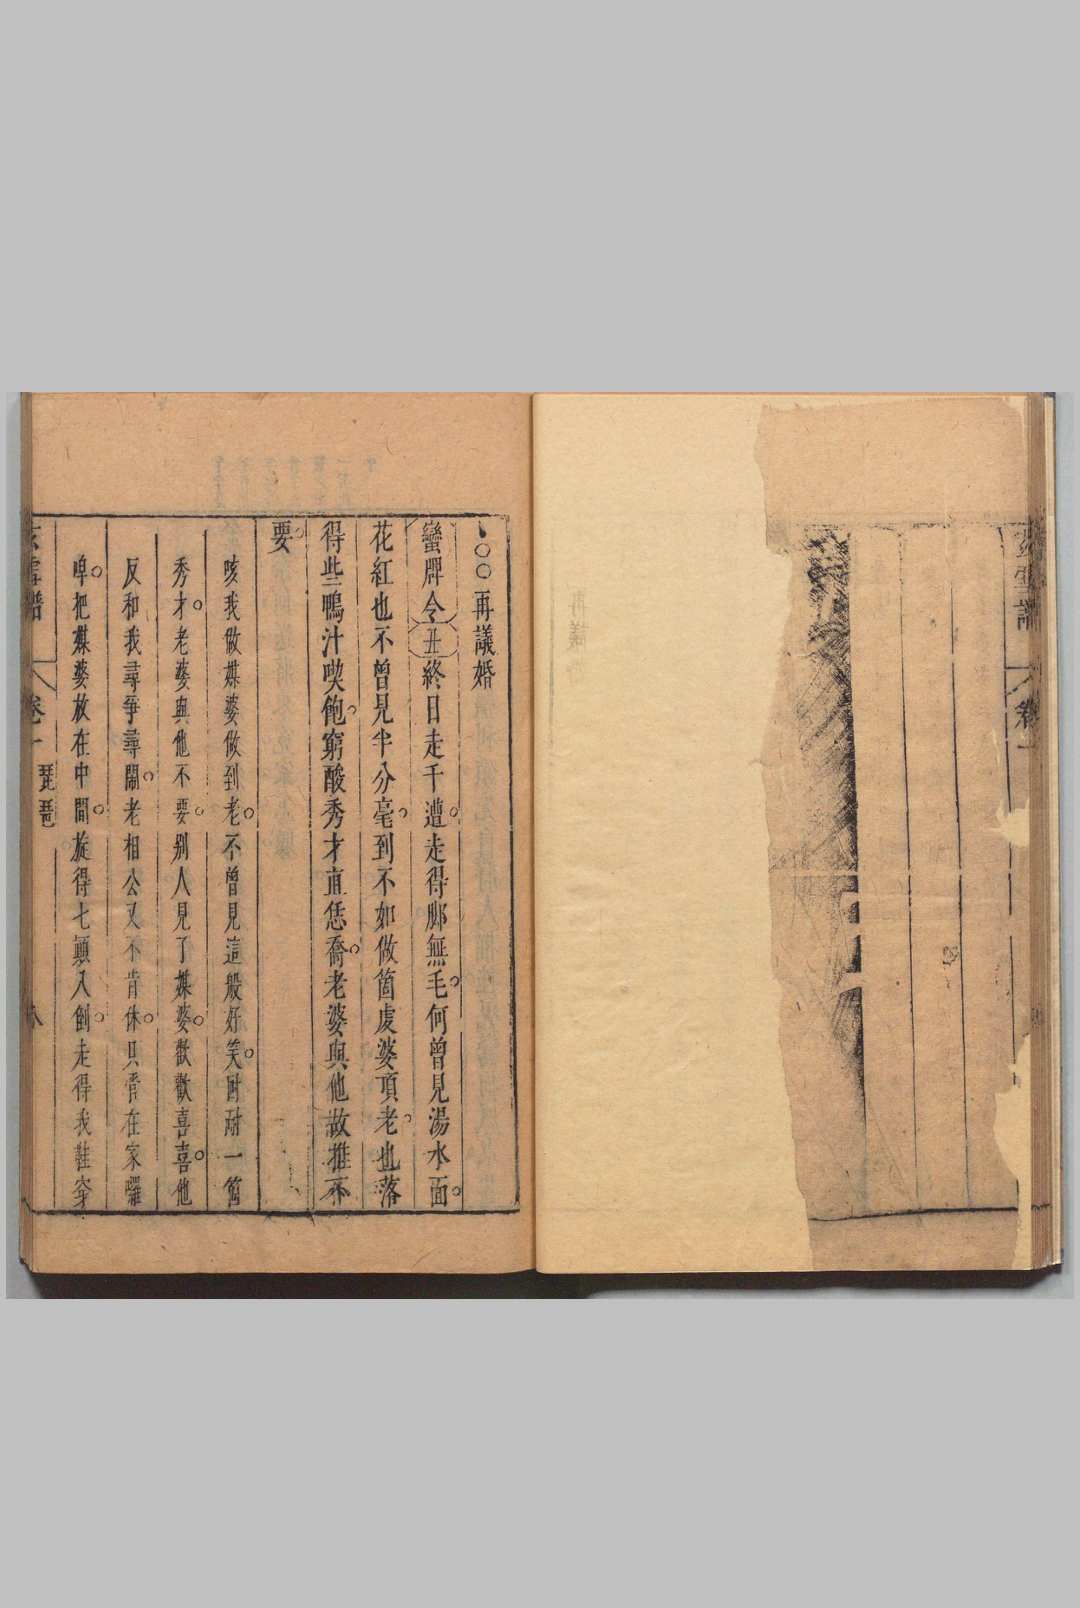 玄雪譜
卷一
再議婚
蠻牌令丑終日走千遭走得脚無毛何曾見湯水面
花紅也不曾見半分毫到不如做箇虔婆頂老也落
得些鴨汁喫飽窮酸秀才直恁喬老婆與他故推不
要
咳我做媒婆做到老不曾見這般好笑時耐一箇
秀才老婆與他不要別人見了媒婆歡歡喜喜他
反和我尋爭尋鬧老相公又不肯休只管在家囉
唣把媒婆放在中間旋得七顛八倒走得我鞋穿
玄雪譜
卷一
琵琶
八